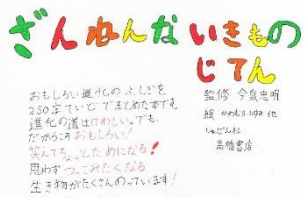 ざんねんないきもの
じてん
おもしろい進化のふしぎを
250字ていどでまとめた本です。
進化の道はけわしい。でも、
だからこそおもしろい!
笑えてちょっとためになる!
思わずつっこみたくなる
生き物がたくさんのっています!
監修 今泉忠明
絵 かわむらふゆみ 他
高橋書店